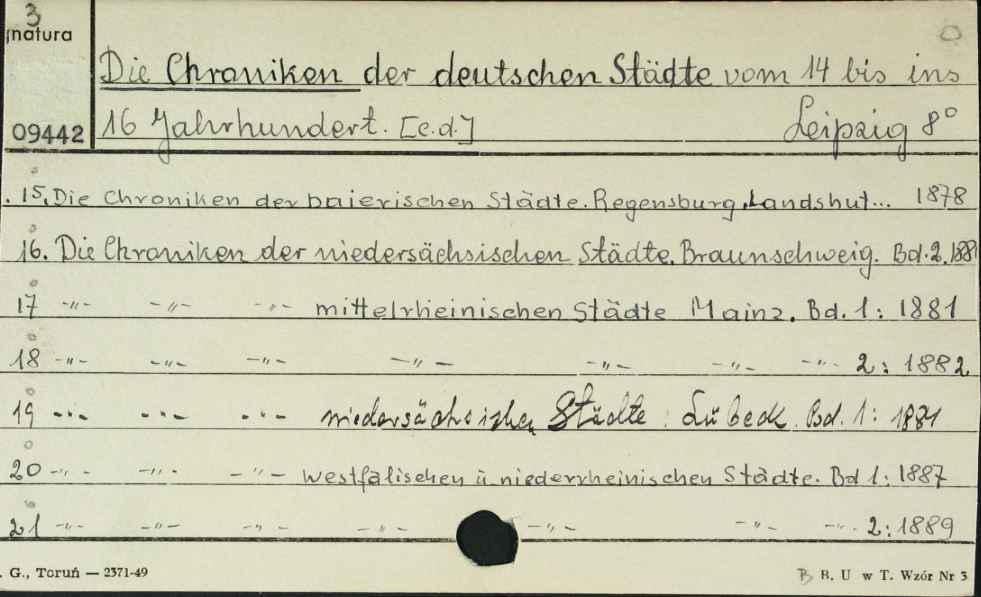 3
natura
Die Chroniken der deutschen Städte vom 14 bis ins
16 Jahrhundert. [c.d.] Leipzig 8°
09442
15. Die Chroniken der baierischen Städte. Regensburg, Landshut... 1878
16. Die Chroniken der niedersächsischen Städte. Braunschweig. Bd. 2. 188
17 -"- -"- -"- mittelrheinischen Städte Mainz. Bd. 1: 1881
18 -"- -"- -"- -"- -"- -"- -"- 2: 1882
19 -"- -"- -"- Städte: Lübeck. Bd. 1: 1884
20 -"- -"- -"- westfälischen u niederrheinischen Städte. Bd 1: 1887
21 -"- -"- -"- -"- -"- -"- -"- 2: 1889
. G., Toruń — 2371-49
B. U w T. Wzór Nr 3